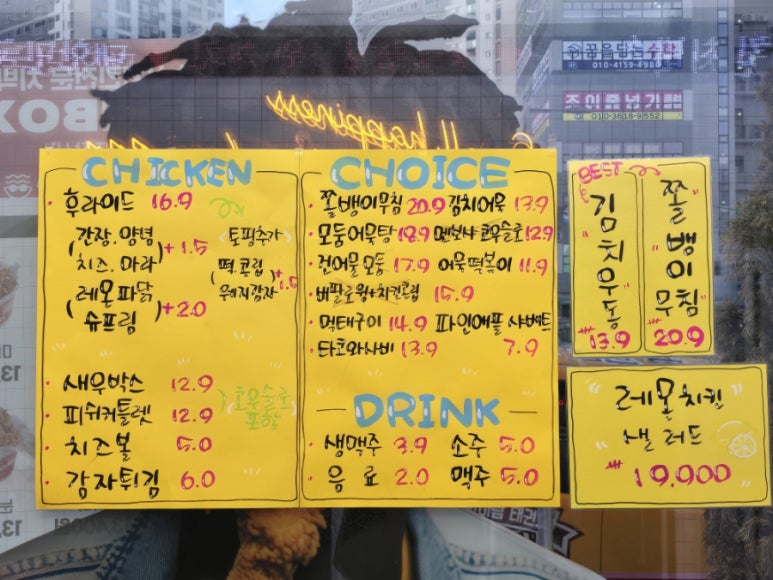 꿈을담는수학
010-4159-4980
조이줄넘기클럽
010-3618-9552
happiness
BOX
CHICKEN
후라이드 16.9
(간장.양념
치즈.마라) +1.5
토핑추가
떡.콘립
웨지감자 +1.0
(레몬 파닭
슈프림) +2.0
새우박스 12.9
피쉬커틀렛 12.9
코우슬로
포함
치즈볼 5.0
감자튀김 6.0
CHOICE
쫄뱅이무침 20.9 김치어묵 13.9
모둠어묵탕 18.9 멘보샤 코우슬로 12.9
건어물모둠 17.9 어묵떡볶이 11.9
버팔로윙+치킨콘립 15.9
먹태구이 14.9 파인애플 샤베트
타코와사비 13.9 7.9
DRINK
생맥주 3.9 소주 5.0
음료 2.0 맥주 5.0
BEST
"김치우동"
₩13.9
"쫄뱅이무침"
₩20.9
레몬치킨
샐러드
₩19,900